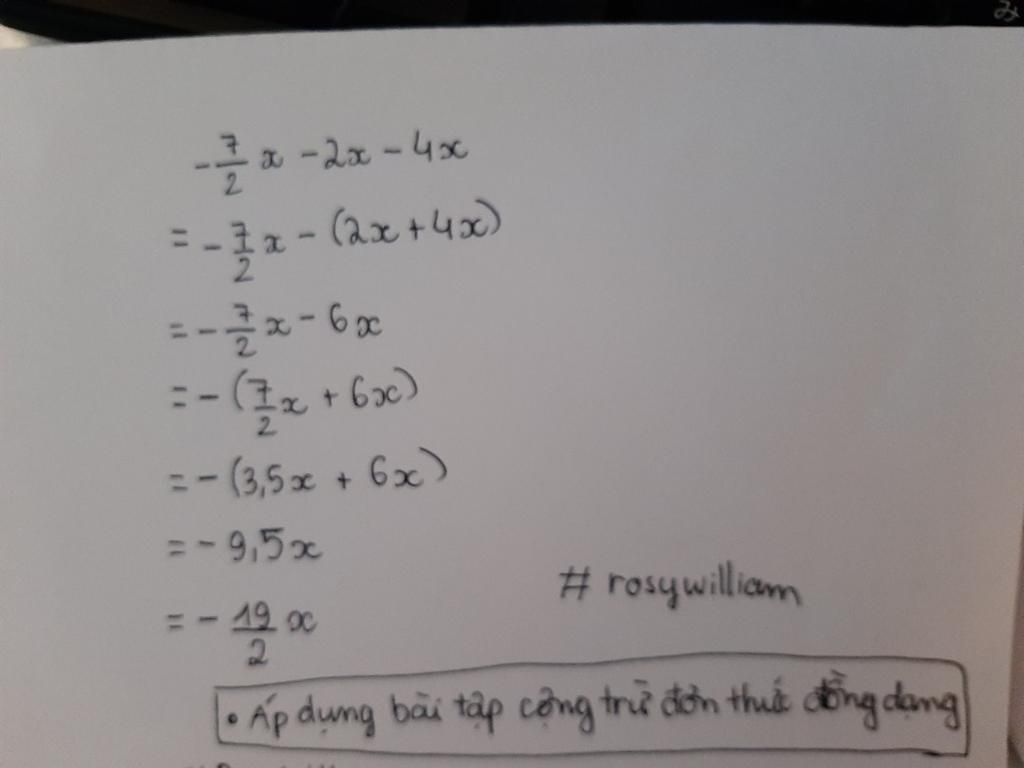 -7/2 x - 2x - 4x
= -7/2 x - (2x + 4x)
= -7/2 x - 6x
= -(7/2 x + 6x)
= -(3,5x + 6x)
= -9,5x
# rosywilliam
= -19/2 x
• Áp dụng bài tập cộng trừ đơn thức đồng dạng